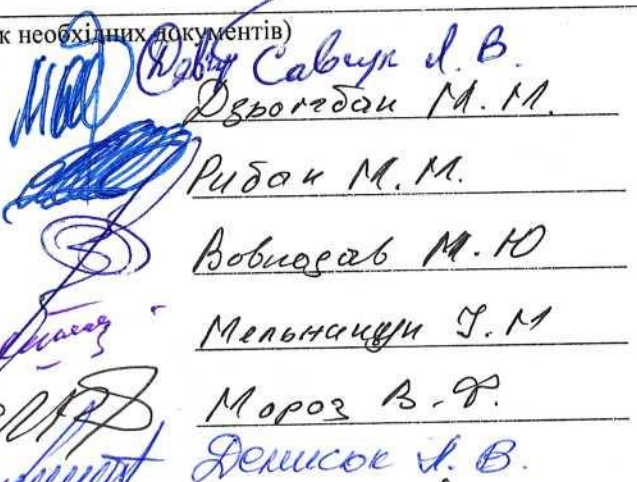 к необхідних документів)
Савчук Л. В.
Дзьомбан М. М.
Рибак М. М.
Вовчадав М. Ю
Мельничук І. М
Мороз В. Ф.
Денисюк Л. В.